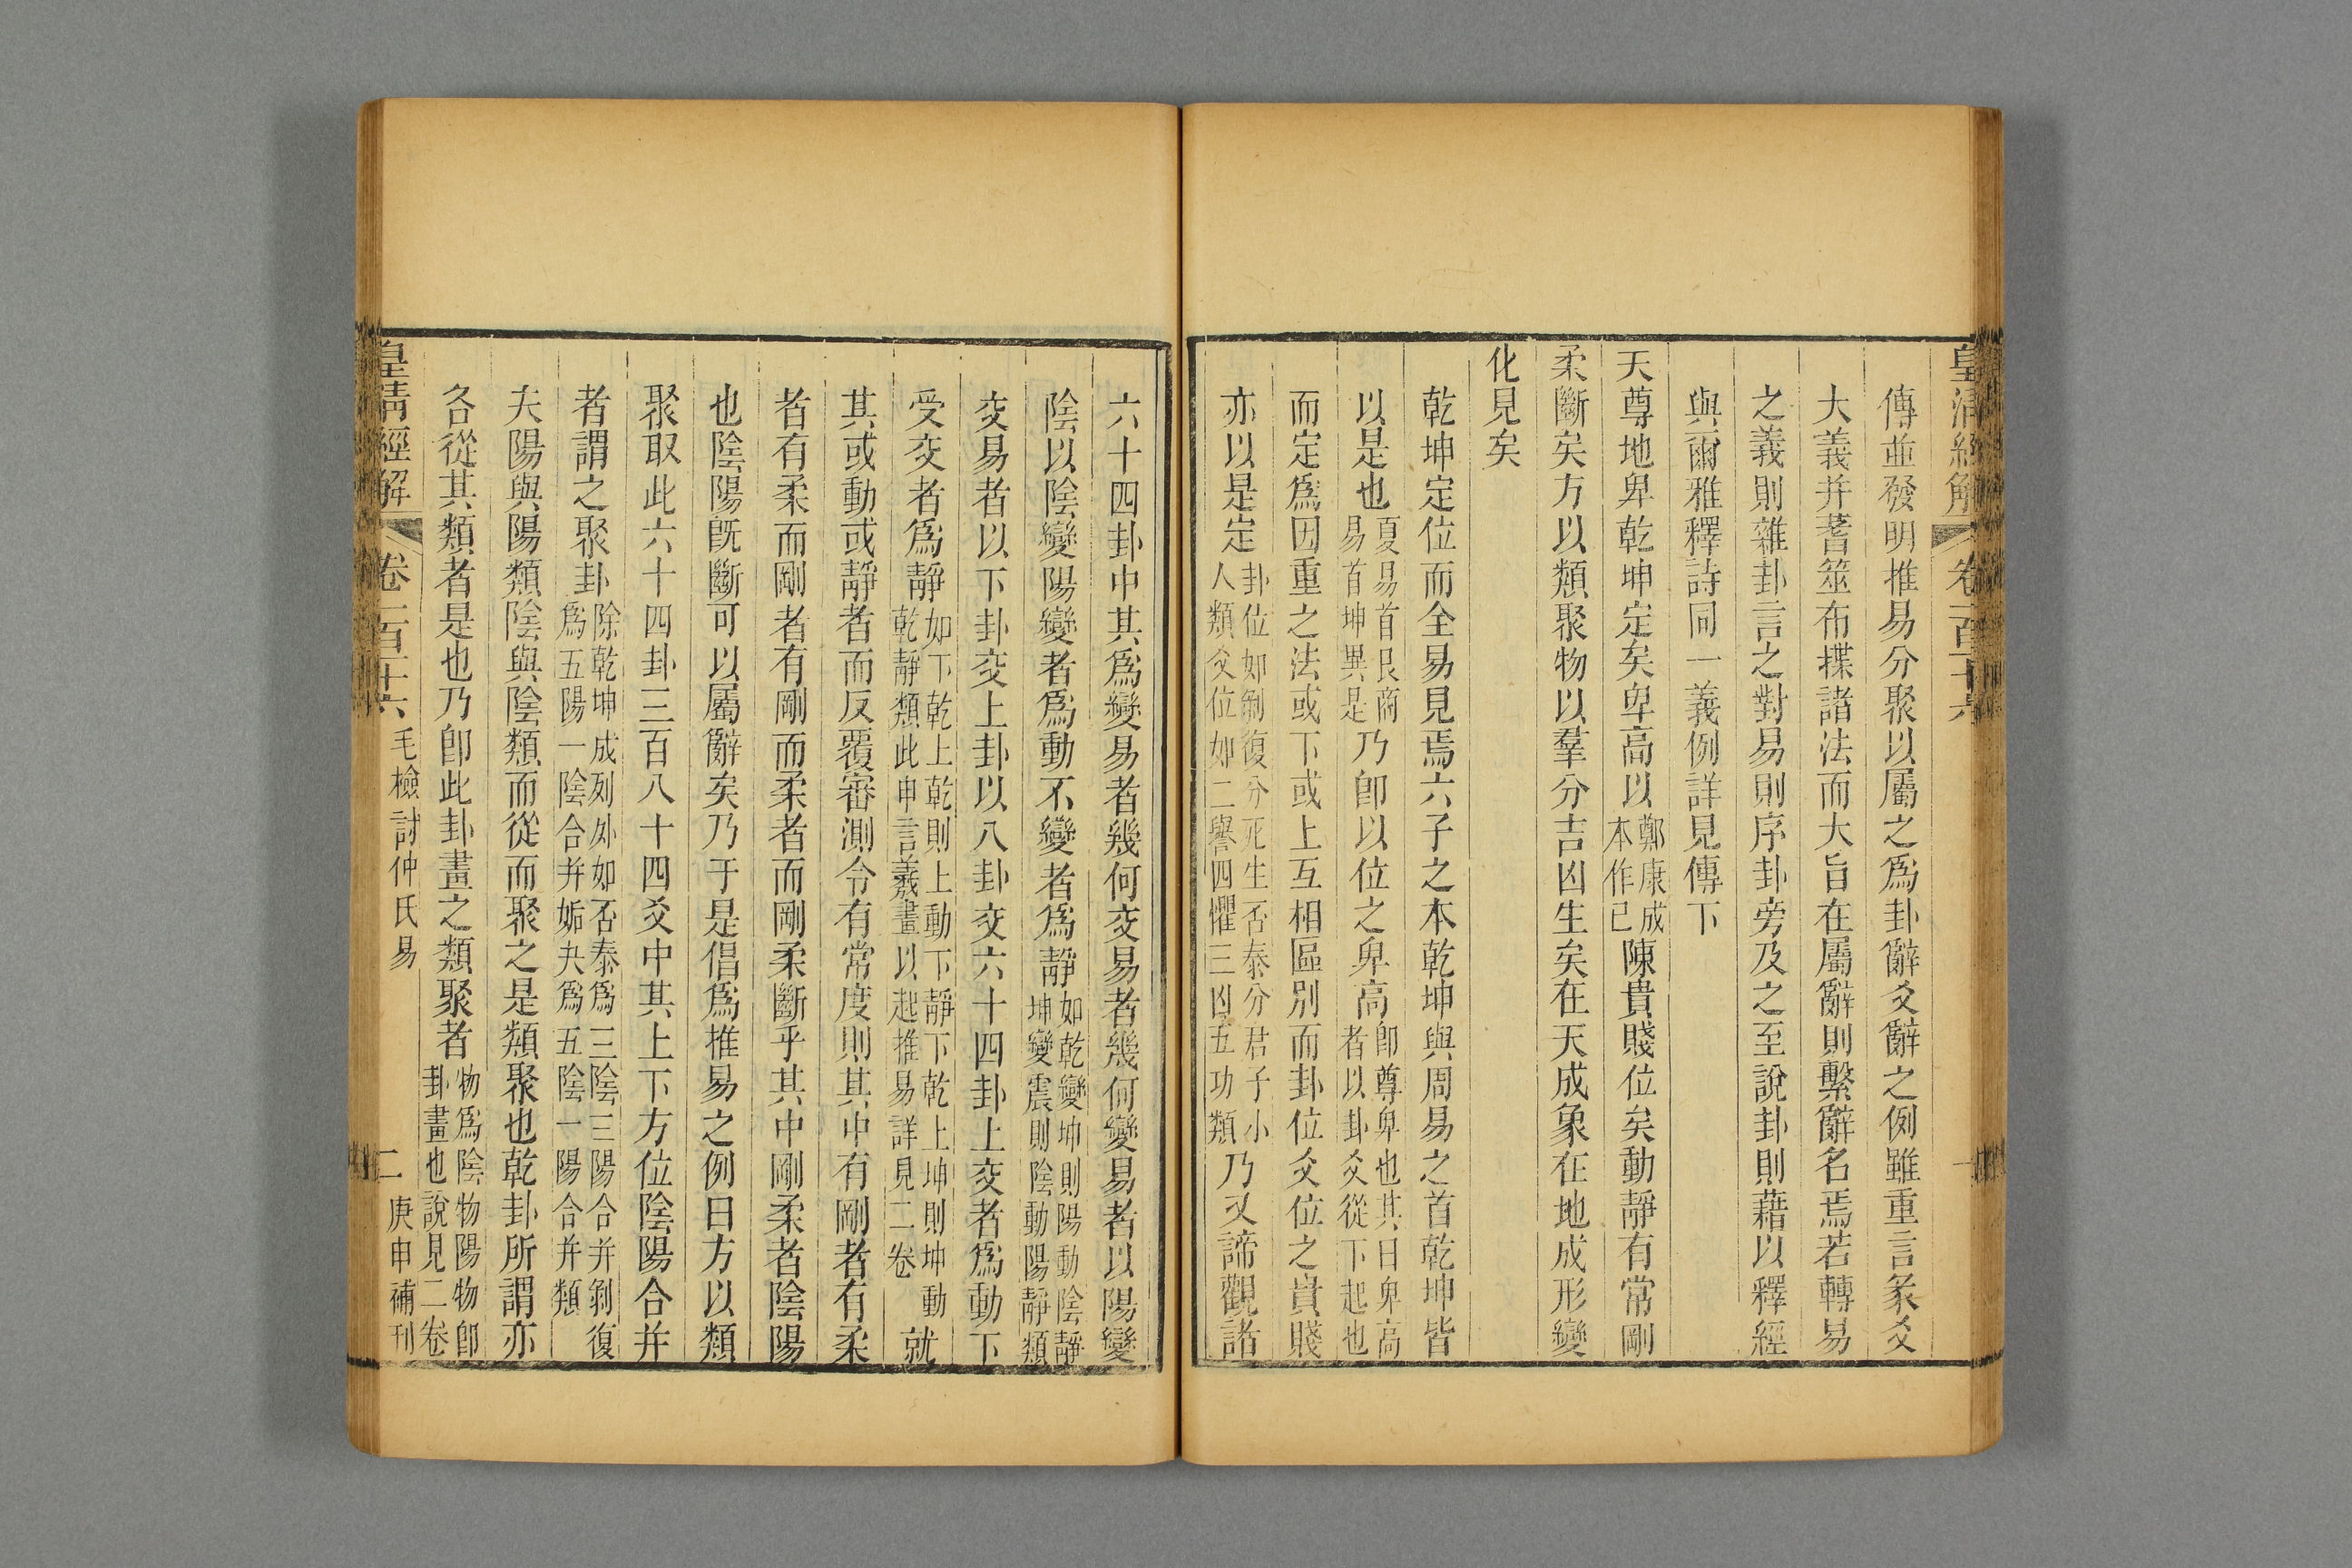 皇清經解 卷一百十六 一
傳並發明推易分聚以屬之爲卦辭爻辭之例雖重言彖爻
大義并蓍筮布揲諸法而大旨在屬辭則繫辭名焉若轉易
之義則雜卦言之對易則序卦旁及之至說卦則藉以釋經
與爾雅釋詩同一義例詳見傳下
天尊地卑乾坤定矣卑高以鄭康成本作已陳貴賤位矣動靜有常剛
柔斷矣方以類聚物以羣分吉凶生矣在天成象在地成形變
化見矣
乾坤定位而全易見焉六子之本乾坤與周易之首乾坤皆
以是也夏易首艮商易首坤異是乃卽以位之卑高卽尊卑也其曰卑高者以卦爻從下起也
而定爲因重之法或下或上互相區別而卦位爻位之貴賤
亦以是定卦位如剝復分死生否泰分君子小人類爻位如二譽四懼三凶五功類乃又諦觀諸
六十四卦中其爲變易者幾何交易者幾何變易者以陽變
陰以陰變陽變者爲動不變者爲靜如乾變坤則陽動陰靜坤變震則陰動陽靜類
交易者以下卦交上卦以八卦交六十四卦上交者爲動下
受交者爲靜如下乾上乾則上動下靜下乾上坤則坤動乾靜類此申言羲畫以起推易詳見二卷就
其或動或靜者而反覆審測令有常度則其中有剛者有柔
者有柔而剛者有剛而柔者而剛柔斷乎其中剛柔者陰陽
也陰陽旣斷可以屬辭矣乃于是倡爲推易之例曰方以類
聚取此六十四卦三百八十四爻中其上下方位陰陽合并
者謂之聚卦除乾坤成列外如否泰爲三陰三陽合并剝復爲五陽一陰合并姤夬爲五陰一陽合并類
夫陽與陽類陰與陰類而從而聚之是類聚也乾卦所謂亦
各從其類者是也乃卽此卦畫之類聚者物爲陰物陽物卽卦畫也說見二卷
皇清經解 卷一百十六 毛檢討仲氏易 二 庚申補刊